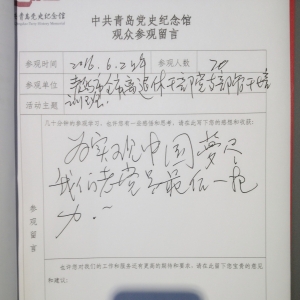 岛党史纪念馆
中共青岛党史纪念馆
观众参观留言
参观时间 2016.6.2 参观人数 70
参观单位 市 离退休干部 支部 干培
活动主题 训班
几十分钟的参观学习，也许您有一些感想和思考，请在此写下您的感想和收获：
为实现中国梦尽
我们老党员最后一把
力.~
参观留言
也许您对我们的工作和服务还有更高的期待和要求，请在此留下您宝贵的意见
和建议：